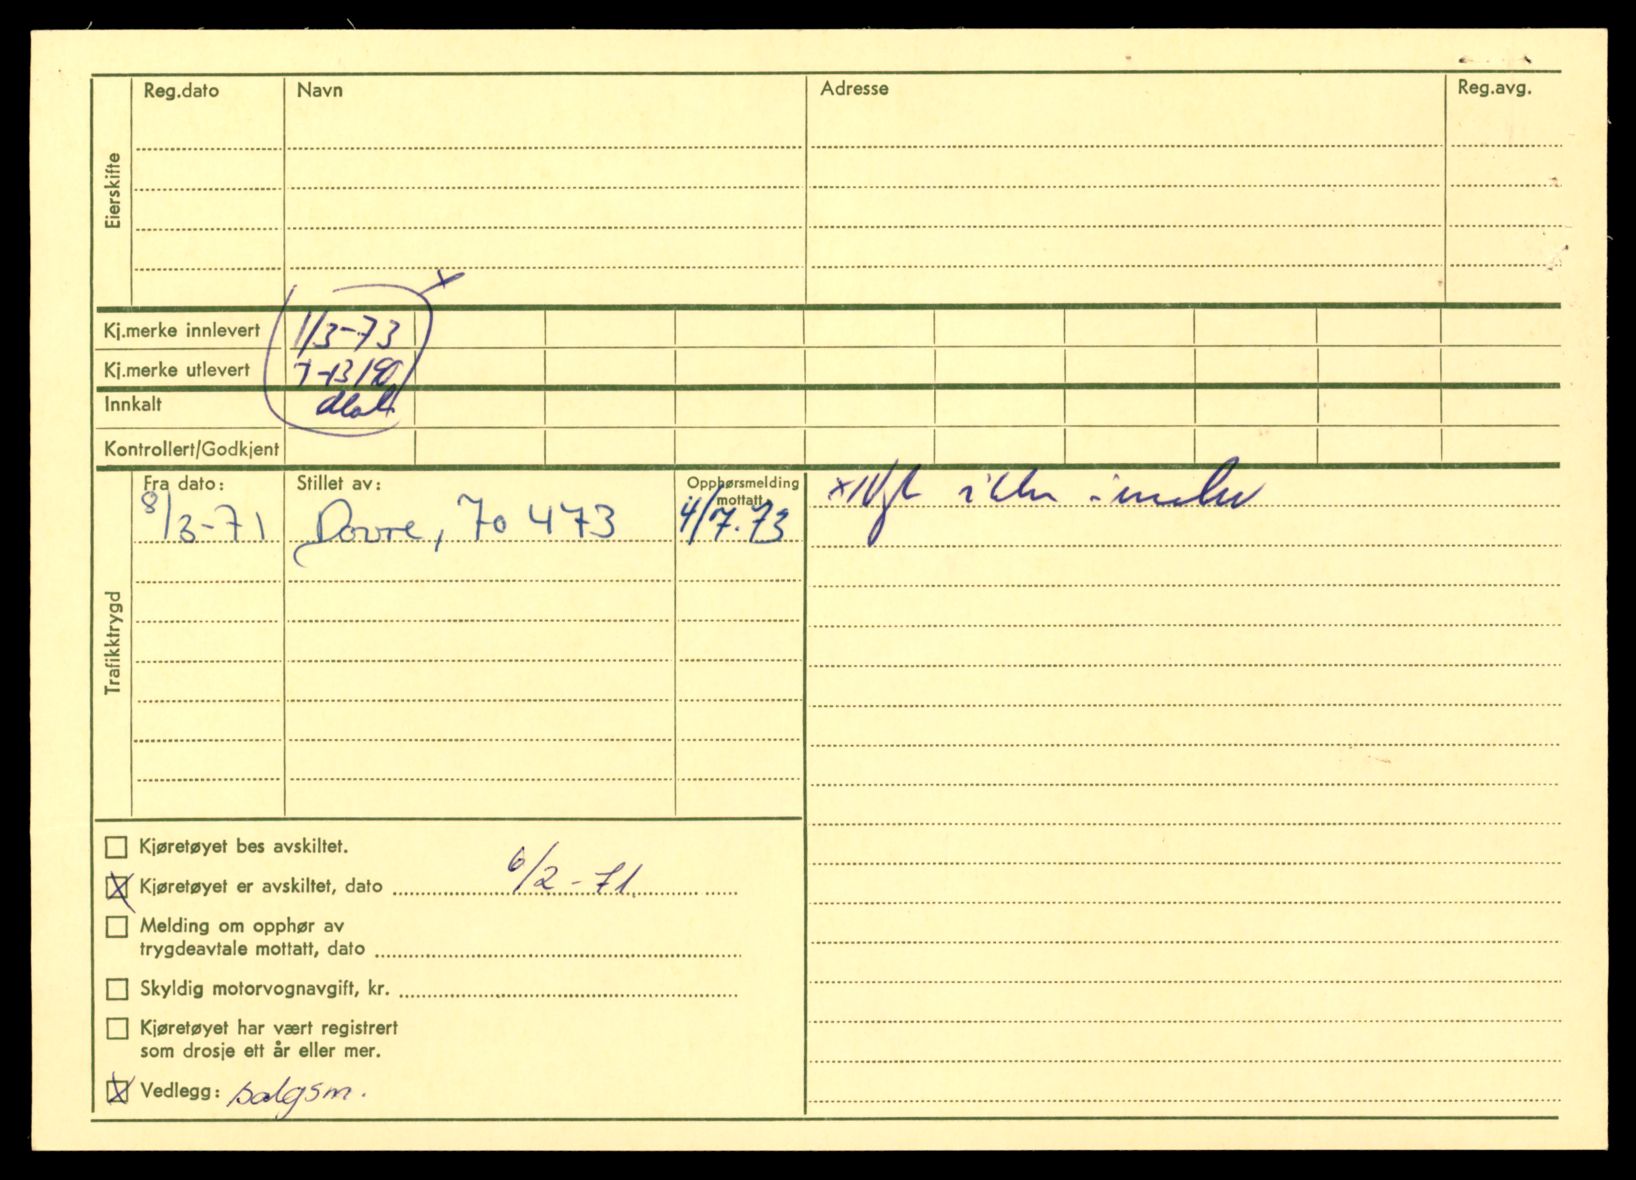 Reg.dato Navn Adresse Reg.avg.
Eierskifte
x
Kj.merke innlevert 1/3-73
Kj.merke utlevert
Innkalt
Kontrollert/Godkjent
Fra dato: Stillet av: Opphørsmelding mottatt
8/3-71 Dovre, 70 473 4/7.73
x ikke
Trafikktrygd
Kjøretøyet bes avskiltet.
X Kjøretøyet er avskiltet, dato 6/2-71
Melding om opphør av
trygdeavtale mottatt, dato
Skyldig motorvognavgift, kr.
Kjøretøyet har vært registrert
som drosje ett år eller mer.
X Vedlegg: salgsm.